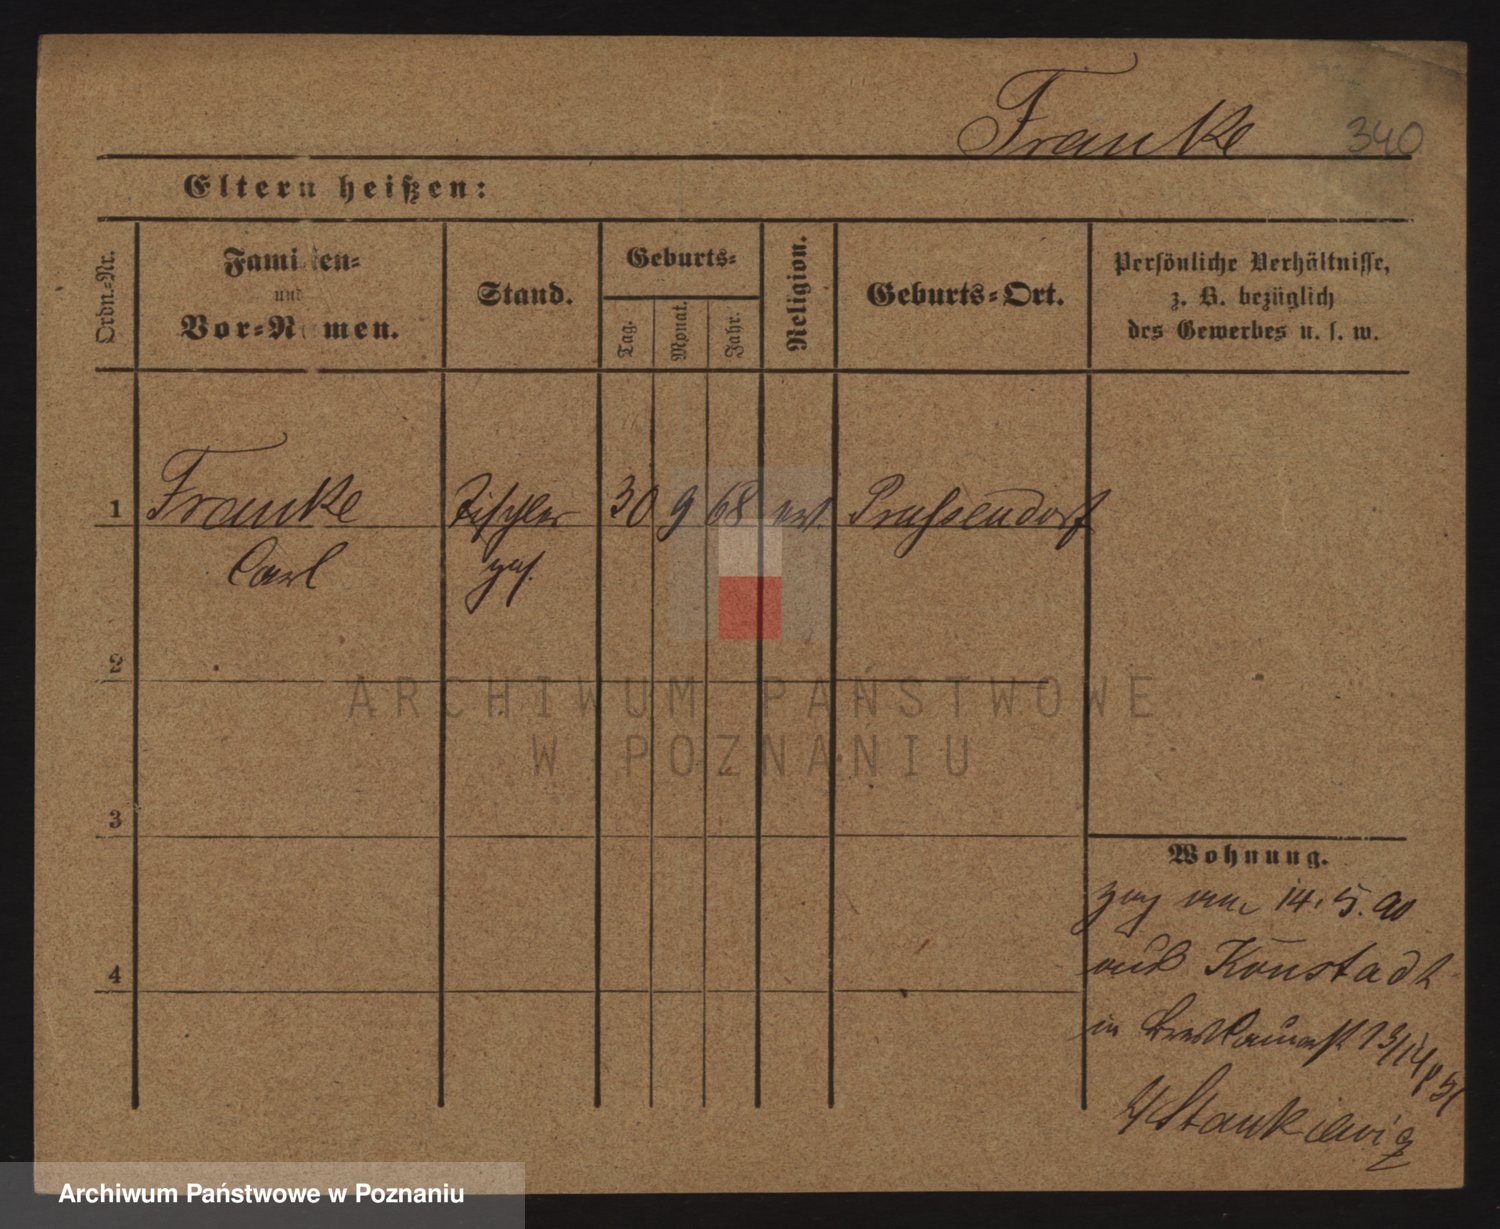 Franke 340
Eltern heißen:
Ordn.-Nr.
Familien-
und
Vor-Namen.
Stand.
Geburts-
Tag.
Monat.
Jahr.
Religion.
Geburts-Ort.
Persönliche Verhältnisse,
z. B. bezüglich
des Gewerbes u. s. w.
1 Franke Tischler 30 9 68 ev Prussendorf
Carl ges.
2
3
4
Wohnung.
zug am 14.5.90
aus Konstadt
in 13/14
Stankiewicz
ARCHIWUM PAŃSTWOWE
W POZNANIU
Archiwum Państwowe w Poznaniu